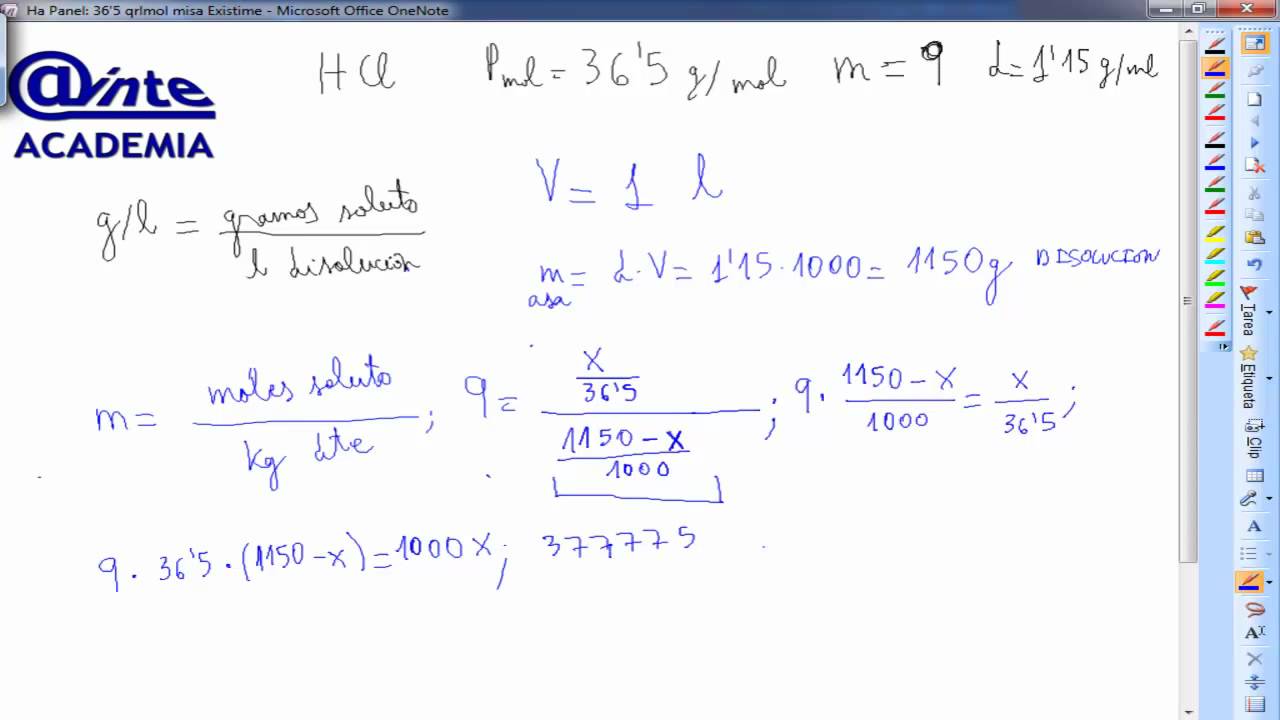 Ha Panel: 36'5 qrlmol misa Existime - Microsoft Office OneNote
HCl Pml = 36'5 g/mol m = 9 d=1'15 g/ml
@inte
ACADEMIA
V = 1 l
g/l = gramos soluto / l disolución
masa = d·V = 1'15·1000 = 1150g DISOLUCION
m = moles soluto / kg dte ; 9 = (x / 36'5) / ((1150-x) / 1000) ; 9 · (1150-x) / 1000 = x / 36'5 ;
9 · 36'5 · (1150-x) = 1000x ; 377775
Tarea
Etiqueta
Clip
A
A